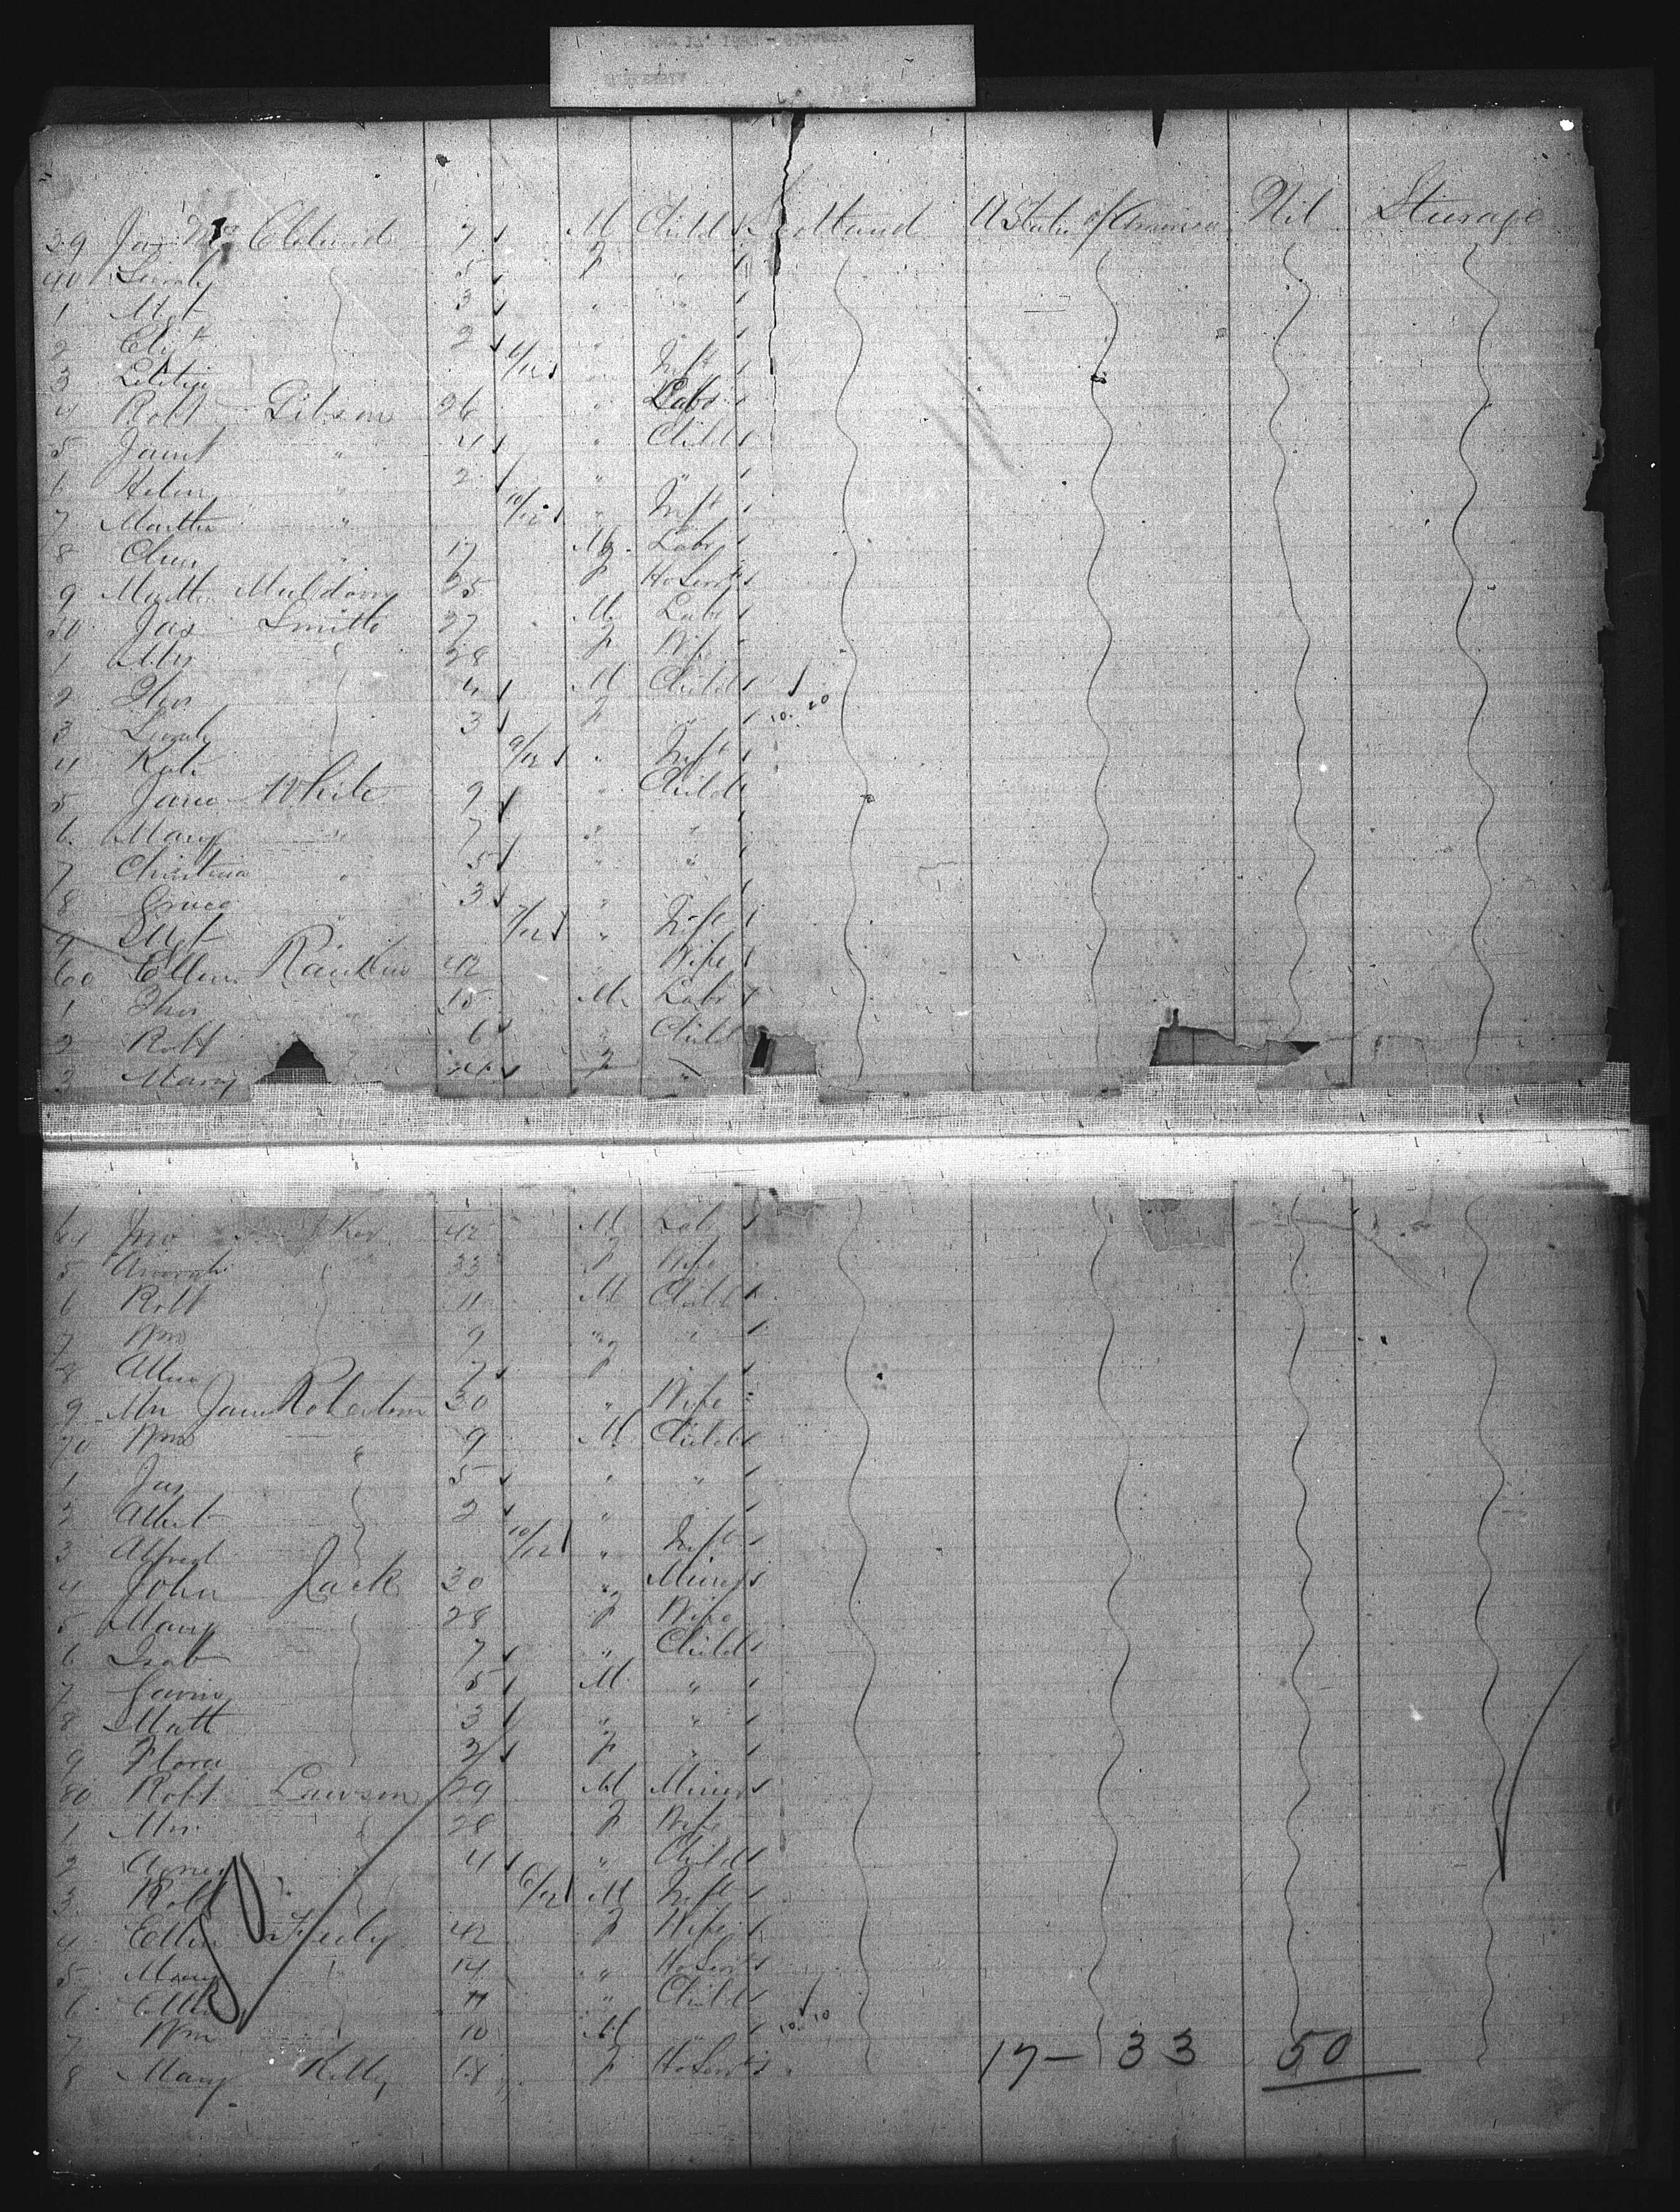 39 Jas Mc Clelland 7 M Child Scotland U States of America Nil Steerage
40 5 F "
1 Mgt 3 " "
2 Elizth 2 " "
3 Letitia /12 " Inft
4 Robt Gibson 26 " Labr
5 Janet " 4 " Child
6 Helen " 2 " "
7 Martha " 10/12 " Inft
8 " 17 M Labr
9 Martha Muldoon 25 F Ho Servt
50 Jas Smith 27 M Labr
1 Mrs 28 F Wife
2 Thos 4 M Child
3 3 F " 10. 20
4 Kate 9/12 " Inft
5 Jane White 9 " Child
6 Mary " 7 " "
7 Christina " 5 " "
8 Grace 3 "
9 Mgt " /12 " Inft
60 Ellen Rankin 42 " Wife
1 Thos " 15 M Labr
2 Robt 6 " Child
3 Mary F "
64 Jno Ker 42 M Labr
5 33 F Wife
6 Robt 11 M Child
7 Wm 9 " "
8 7 F "
9 Mrs Jane Robertson 30 " Wife
70 Wm " 9 M Child
1 Jas 5 " "
2 Albert 2 " "
3 Alfred 10/12 " Inft
4 John Jack 30 " Miner
5 Mary 28 F Wife
6 Isab 7 " Child
7 Gavin 5 M "
8 Matt 3 " "
9 Flora 2 F "
80 Robt Lawson 29 M Miner
1 Mrs 28 F Wife
2 Agnes 4 " Child
3 Robt 6/12 M Inft
4 Ellen 42 F Wife
5 Mary 14 " Ho Servt
6 Ellen 11 " Child
7 Wm 10 M " 10. 10
8 Mary Kelly 18 F Ho Servt
17 - 33 50